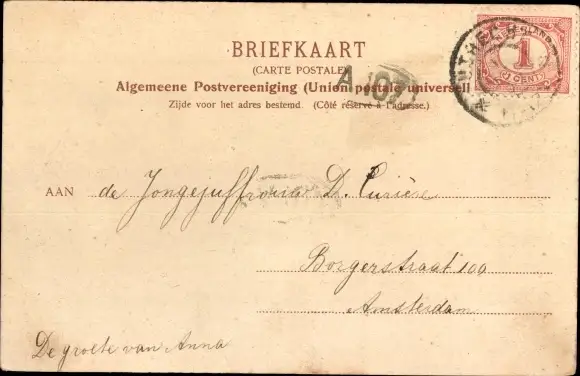 BRIEFKAART
(CARTE POSTALE)
Algemeene Postvereeniging (Union postale universelle)
Zijde voor het adres bestemd. (Côté réservé à l'adresse.)
NEDERLAND
1
CENT
UTRECHT
A 107
AAN de Jongejuffrouw D.
Borgerstraat 109
Amsterdam
De groete van Anna